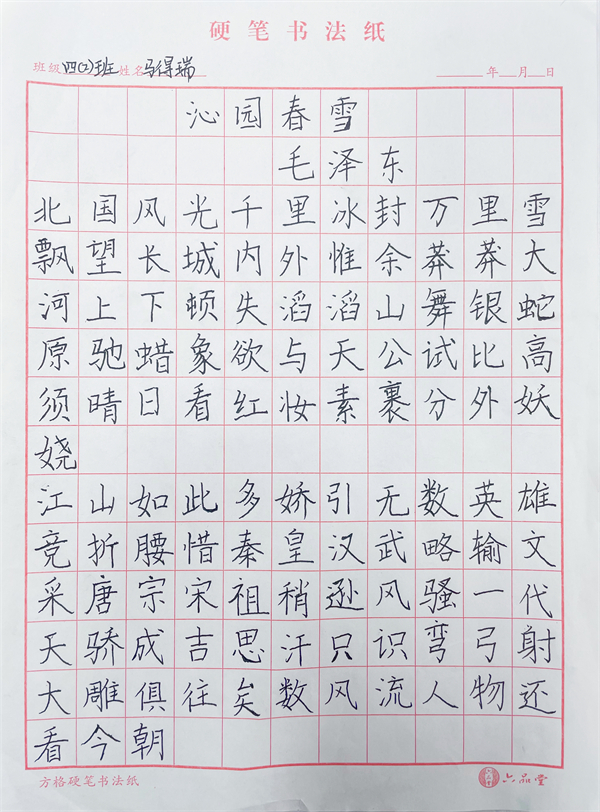 硬笔书法纸
班级四(2)班姓名马得瑞 年 月 日
沁园春雪
毛泽东
北国风光千里冰封万里雪
飘望长城内外惟余莽莽大
河上下顿失滔滔山舞银蛇
原驰蜡象欲与天公试比高
须晴日看红妆素裹分外妖
娆
江山如此多娇引无数英雄
竞折腰惜秦皇汉武略输文
采唐宗宋祖稍逊风骚一代
天骄成吉思汗只识弯弓射
大雕俱往矣数风流人物还
看今朝
方格硬笔书法纸 六品堂